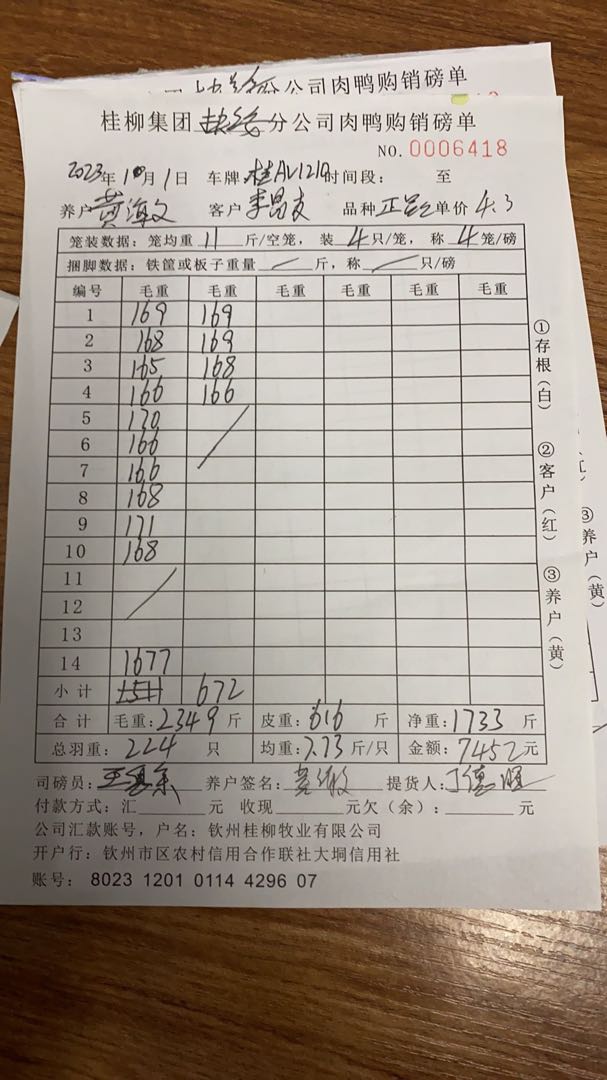 分公司肉鸭购销磅单
桂柳集团 分公司肉鸭购销磅单
NO. 0006418
2023年10月1日 车牌:桂AV121 时间段: 至
养户黄海文 客户李昌友 品种正 单价4.3
笼装数据: 笼均重11斤/空笼, 装4只/笼, 称4笼/磅
捆脚数据: 铁筐或板子重量/斤, 称/只/磅
编号 毛重 毛重 毛重 毛重 毛重 毛重
1 169 169
2 168 169
3 165 168
4 166 166
5 170
6 166
7 166
8 168
9 171
10 168
11
12
13
14 1677
小计 672
合计 毛重:2349斤 皮重:616斤 净重:1733斤
总羽重:224只 均重:7.73斤/只 金额:7452元
司磅员: 养户签名: 提货人:
付款方式: 汇 元 收现 元欠(余): 元
公司汇款账号, 户名: 钦州桂柳牧业有限公司
开户行: 钦州市区农村信用合作联社大垌信用社
账号: 8023 1201 0114 4296 07
①存根(白)
②客户(红)
③养户(黄)
③养户(黄)